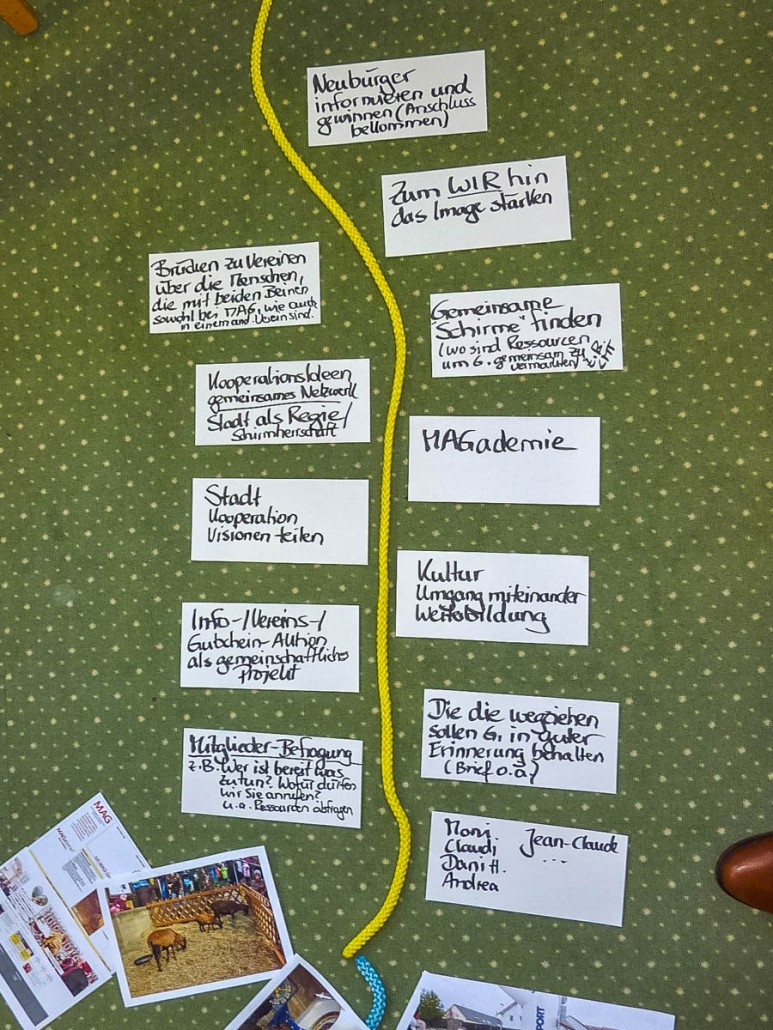 Neubürger
informieren und
gewinnen (Anschluss
bekommen)
Zum WIR hin
das Image stärken
Brücken zu Vereinen
über die Menschen,
die mit beiden Beinen
sowohl bei MAG, wie auch
in einem and. Verein sind.
Gemeinsame
"Schirme" finden
(wo sind Ressourcen
um G. gemeinsam zu
vermarkten)
KooperationsIdeen
gemeinsames Netzwerk
Stadt als Regie/
Schirmherrschaft
MAGademie
Stadt
Kooperation
Visionen teilen
Kultur
Umgang miteinander
Weiterbildung
Info-/Vereins-/
Gutschein-Aktion
als gemeinschaftliches
Projekt
Die die wegziehen
sollen G. in guter
Erinnerung behalten
(Brief o.ä)
Mitglieder-Befragung
z.B. Wer ist bereit was
zu tun? Wofür dürfen
wir Sie anrufen?
u.a. Ressourcen abfragen
Moni
Claudi
Dani H.
Andrea
Jean-Claude
...
MAG
PORT